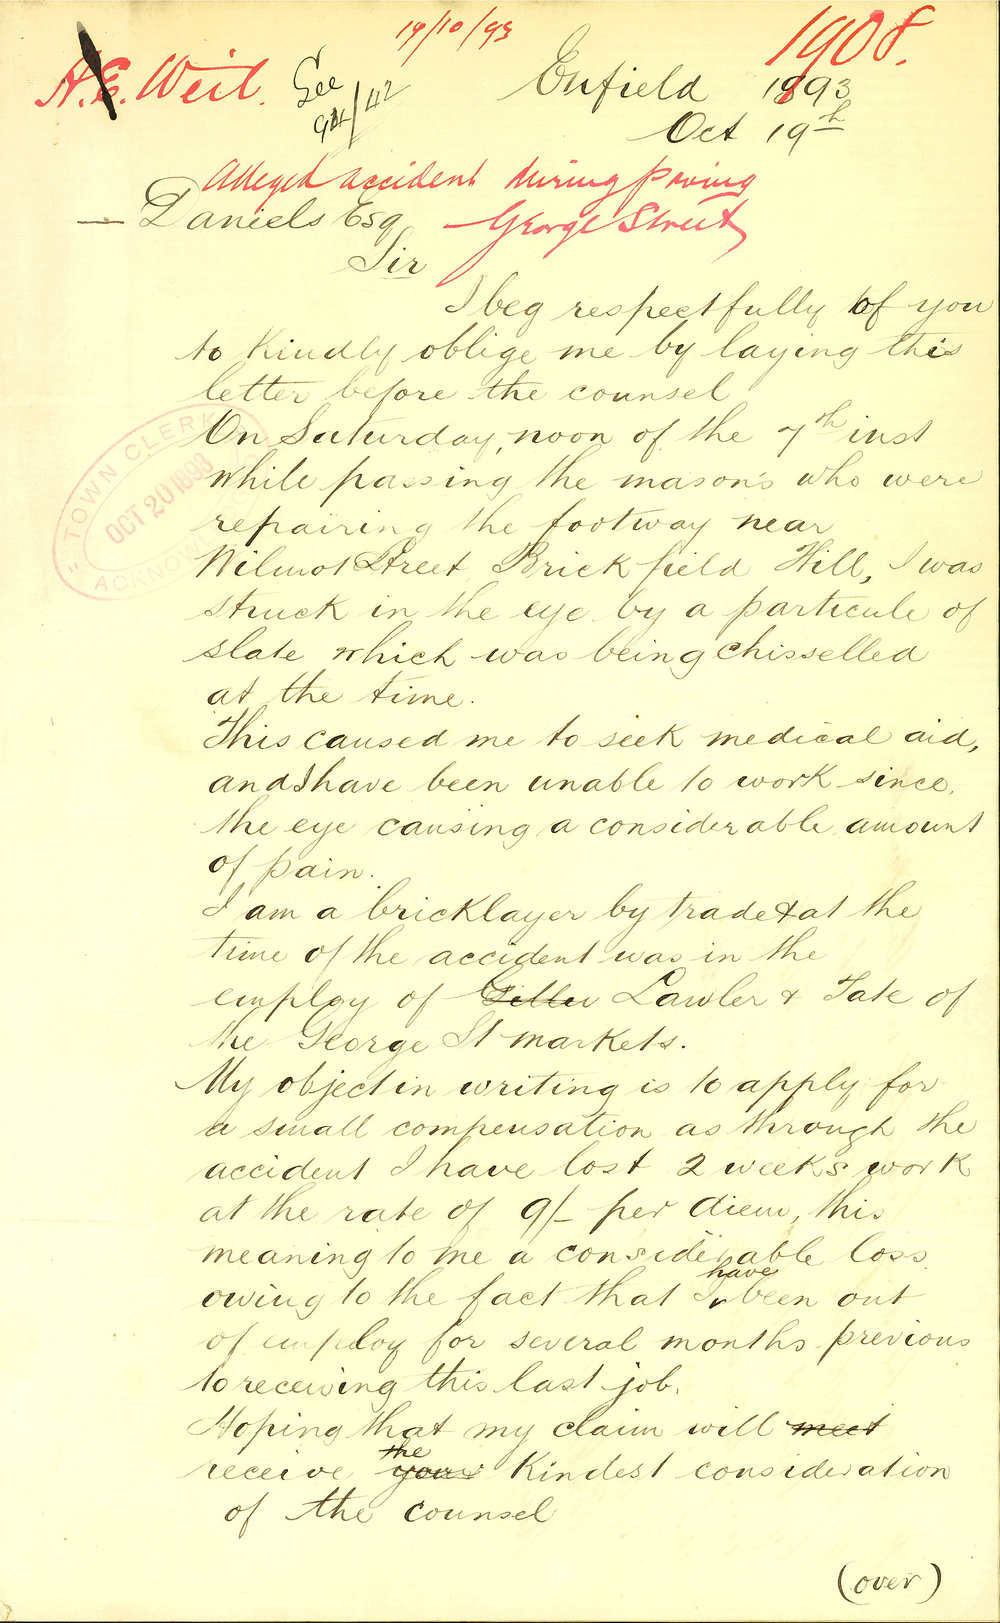 19/10/93
1908.
H.E. Weil.
See
94/42
Enfield 1893
Oct 19th
Alleged accident during paving
— Daniels Esq
George Street
Sir
I beg respectfully of you
to kindly oblige me by laying this
letter before the counsel
On Saturday, noon of the 7th inst
while passing the mason's who were
repairing the footway near
Wilmot Street Brickfield Hill, I was
struck in the eye by a particule of
slate which was being chisselled
at the time.
This caused me to seek medical aid,
and I have been unable to work since,
the eye causing a considerable amount
of pain.
I am a bricklayer by trade & at the
time of the accident was in the
employ of Lawler & Tate of
the George St markets.
My object in writing is to apply for
a small compensation as through the
accident I have lost 2 weeks work
at the rate of 9/- per diem, this
meaning to me a considerable loss
owing to the fact that I have been out
of employ for several months previous
to receiving this last job.
Hoping that my claim will meet
receive the your kindest consideration
of the counsel
(over)
TOWN CLERK
OCT 20 1893